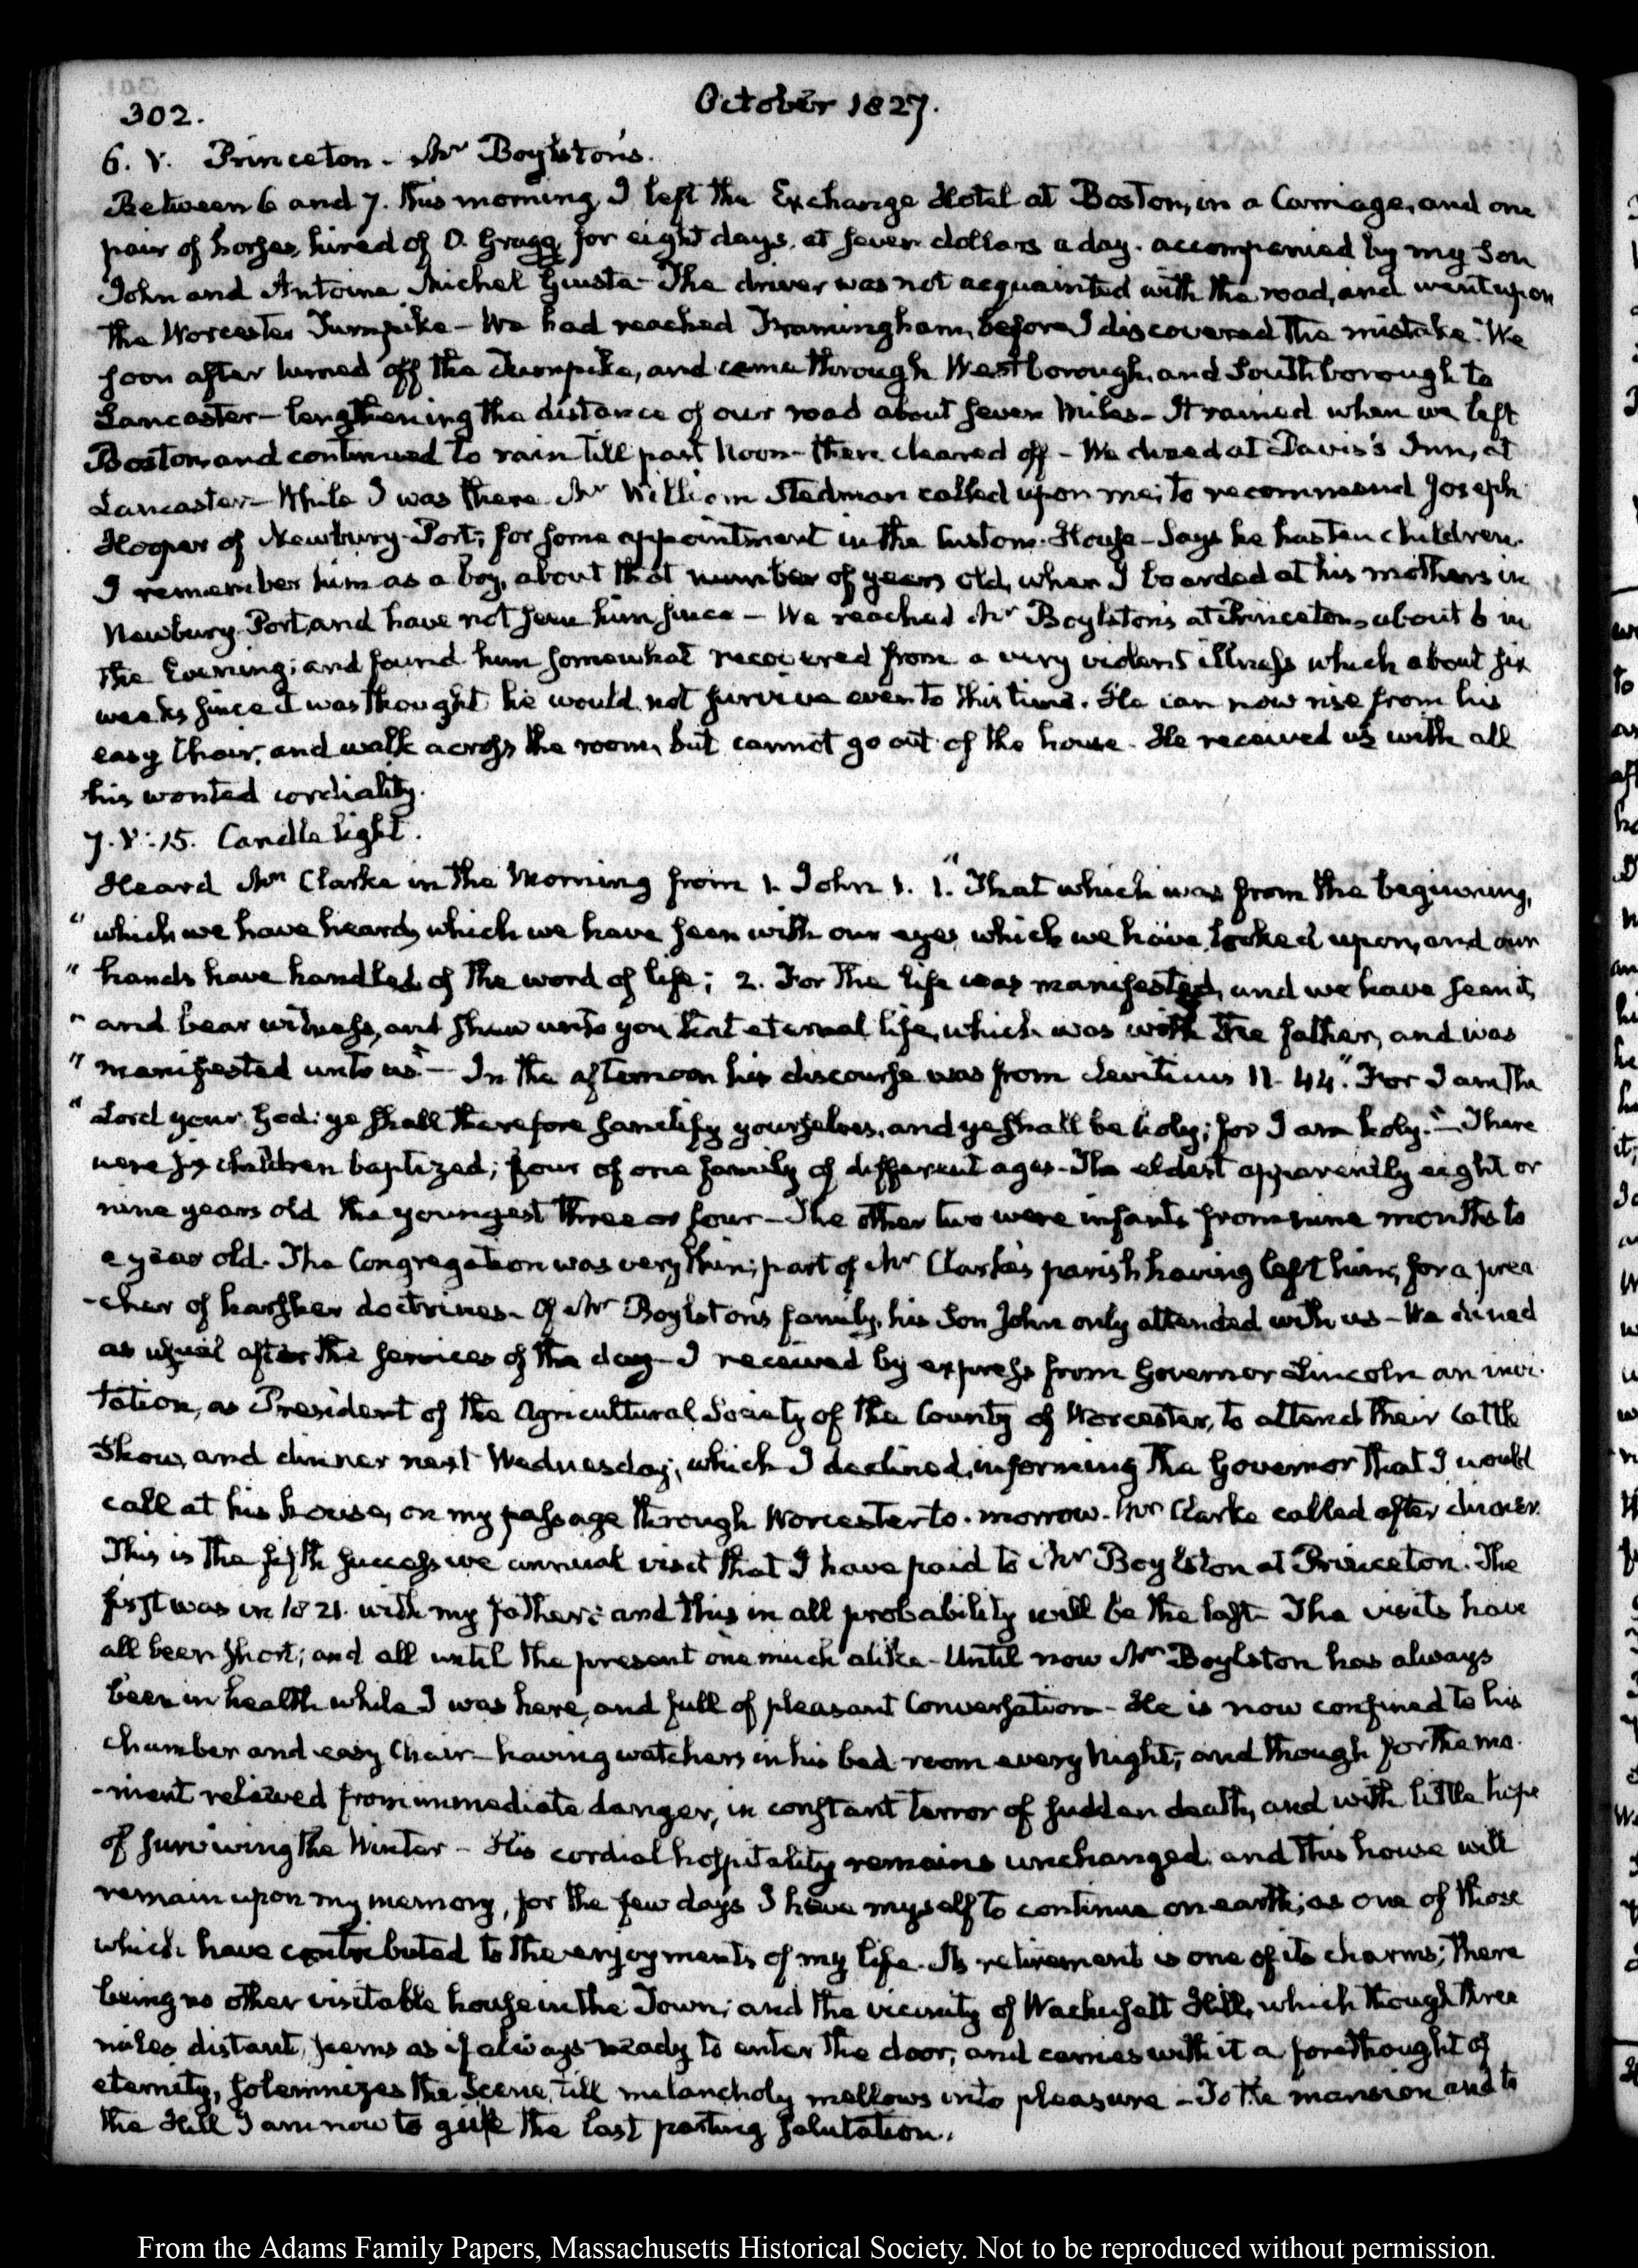 302.
October 1827.
6. V. Princeton - Mr Boylston's.
Between 6 and 7. this morning, I left the Exchange Hotel at Boston, in a Carriage, and one
pair of horses, hired of D. Gragg for eight days, at seven dollars a day. accompanied by my Son
John and Antoine Michel Giusta - The driver was not acquainted with the road, and went upon
the Worcester Turnpike - We had reached Framingham, before I discovered the mistake. We
soon after turned off the Turnpike, and came through Westborough, and Southborough to
Lancaster - lengthening the distance of our road about seven Miles - It rained when we left
Boston, and continued to rain till past Noon - then cleared off - We dined at Davis's Inn, at
Lancaster - While I was there Mr William Stedman called upon me; to recommend Joseph
Hooper of Newbury-Port; for some appointment in the Custom-House - Says he has ten children.
I remember him as a boy, about that number of years old, when I boarded at his mothers in
Newbury-Port, and have not seen him since - We reached Mr Boylston's at Princeton, about 6 in
the Evening; and found him somewhat recovered from a very violent illness which about six
weeks since it was thought he would not survive even to this time. He can now rise from his
easy Chair, and walk across the room, but cannot go out of the house. He received us with all
his wonted cordiality.
7. V:15. Candle light.
Heard Mr Clarke in the Morning from 1. John 1. 1. "That which was from the beginning,
" which we have heard, which we have seen with our eyes which we have looked upon, and our
" hands have handled, of the word of life; 2. For the life was manifested, and we have seen it,
" and bear witness, and shew unto you that eternal life, which was with the father, and was
" manifested unto us." - In the afternoon his discourse was from Leviticus 11. 44. "For I am the
" Lord your God: ye shall therefore sanctify yourselves, and ye shall be holy; for I am holy." - There
were six children baptized; four of one family of different ages - The eldest apparently eight or
nine years old the youngest three or four - The other two were infants from nine months to
a year old. The Congregation was very thin; part of Mr Clarke's parish having left him, for a prea
-cher of harsher doctrines. Of Mr Boylston's family, his Son John only attended with us - We dined
as usual after the services of the day - I received by express from Governor Lincoln an invi-
tation, as President of the Agricultural Society of the County of Worcester, to attend their Cattle
Show, and dinner next Wednesday; which I declined, informing the Governor that I would
call at his house, on my passage through Worcester to-morrow. Mr Clarke called after dinner.
This is the fifth successive annual visit that I have paid to Mr Boylston at Princeton. The
first was in 1821. with my father; and this in all probability will be the last. The visits have
all been short; and all until the present one much alike - Until now Mr Boylston has always
been in health while I was here, and full of pleasant Conversation - He is now confined to his
chamber and easy Chair - having watchers in his bed-room every Night; and though for the mo-
-ment relieved from immediate danger, in constant terror of sudden death, and with little hope
of surviving the Winter - His cordial hospitality remains unchanged; and this house will
remain upon my memory, for the few days I have myself to continue on earth; as one of those
which have contributed to the enjoyments of my life. Its retirement is one of its charms; there
being no other visitable house in the Town; and the vicinity of Wachusett Hill, which though three
miles distant, seems as if always ready to enter the door, and carries with it a forethought of
eternity, solemnizes the Scene, till melancholy mellows into pleasure - To the mansion and to
the Hill I am now to give the last parting salutation.
From the Adams Family Papers, Massachusetts Historical Society. Not to be reproduced without permission.